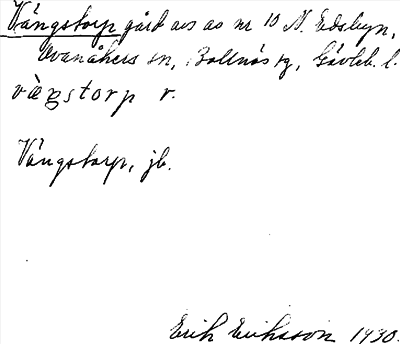 Vångstorp gård avs av nr 10 N. Edsbyn,
Ovanåkers sn, Bollnäs tg, Gävleb. l.
våŋstorp r.
Vångstorp, jb.
Erik Eriksson 1930.